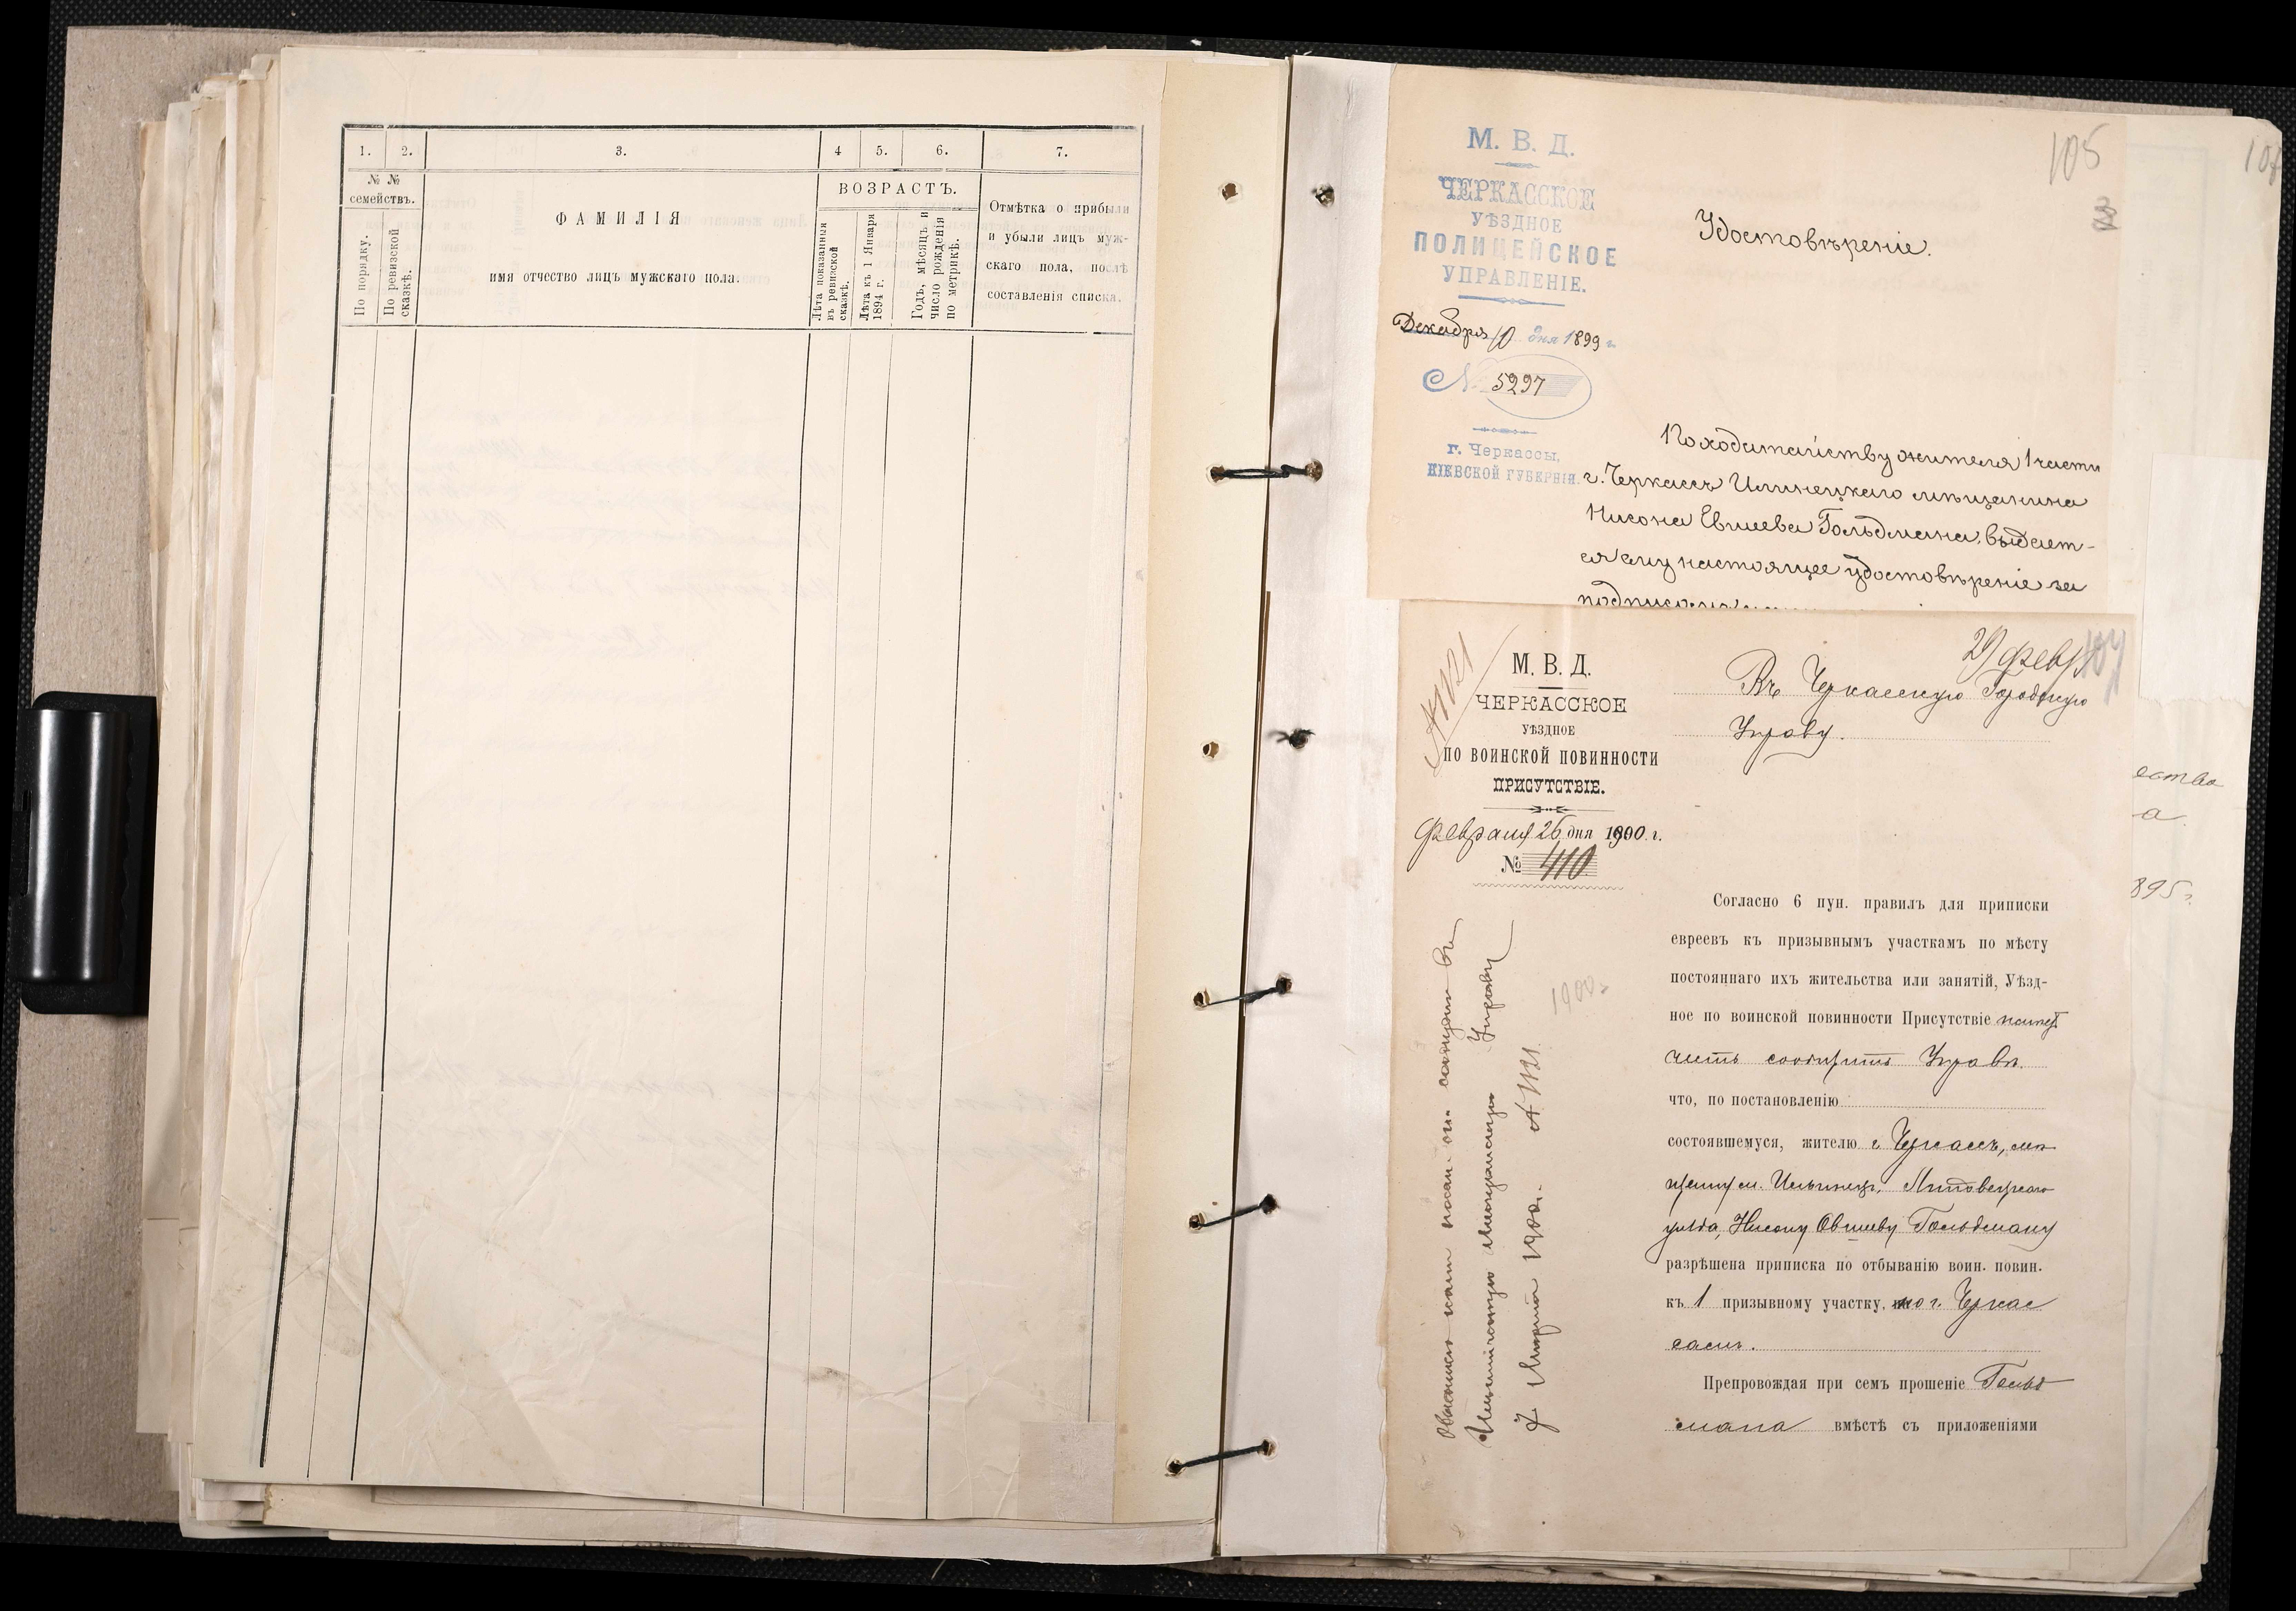 1. 2. 3. 4 5. 6. 7.
№ № семействъ.
По порядку.
По ревизской сказкѣ.
ФАМИЛІЯ
имя отчество лицъ мужскаго пола.
ВОЗРАСТЪ.
Лѣта показанныя въ ревизской сказкѣ.
Лѣта къ 1 Января 1894 г.
Годъ, мѣсяцъ и число рожденія по метрикѣ.
Отмѣтка о прибыли
и убыли лицъ муж-
скаго пола, послѣ
составленія списка.
М. В. Д.
ЧЕРКАССКОЕ
УѢЗДНОЕ
ПОЛИЦЕЙСКОЕ
УПРАВЛЕНІЕ.
Декабря 10 дня 1899 г.
№ 5297
г. Черкассы,
КІЕВСКОЙ ГУБЕРНІИ.
105
Удостовѣреніе.
По ходатайству жителя 1 части
г. Черкассъ Илинецкаго мѣщанина
Нисона Евшева Гольдмана, выдает-
ся ему настоящее удостовѣреніе за
107
М. В. Д.
ЧЕРКАССКОЕ
УѢЗДНОЕ
ПО ВОИНСКОЙ ПОВИННОСТИ
ПРИСУТСТВІЕ.
Февраля 26 дня 1900 г.
№ 410
29 февр
Въ Черкасскую Городскую
Управу.
Согласно 6 пун. правилъ для приписки
евреевъ къ призывнымъ участкамъ по мѣсту
постояннаго ихъ жительства или занятій, Уѣзд-
ное по воинской повинности Присутствіе имѣетъ
честь сообщить Управѣ
что, по постановленію
состоявшемуся, жителю г. Черкассъ, мѣ
щанину м. Ильинецъ, Липовецкаго
уѣзда, Нисону Овшеву Гольдману
разрѣшена приписка по отбыванію воин. повин.
къ 1 призывному участку, по г. Черкас
самъ.
Препровождая при семъ прошеніе Гольд
мана вмѣстѣ съ приложеніями
Управу
7 Марта 1900 г. № 1121
1900 г.
ества
а
895 г.